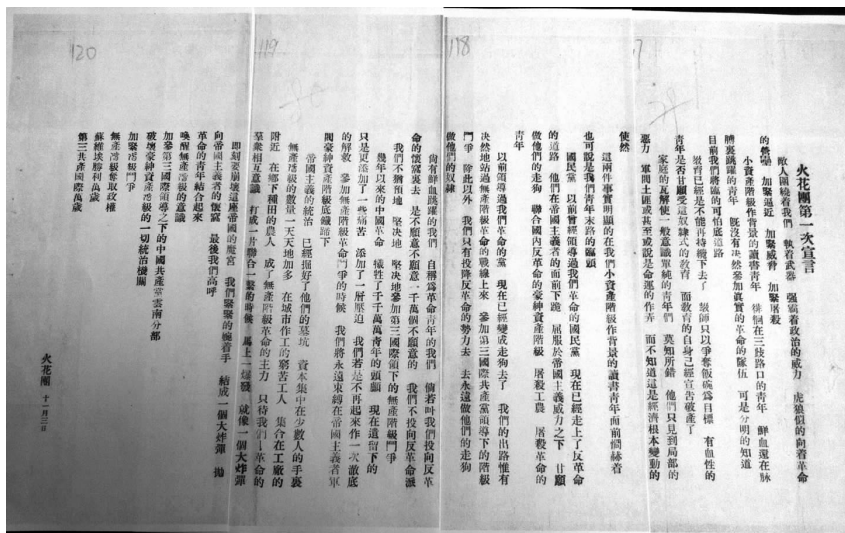 火花團第一次宣言
敵人圍繞着我們　執着武器　强霸着政治的威力　虎狼似的向着革命
的營壘　加緊逼近　加緊威脅　加緊屠殺
小資產階級作背景的讀書青年　徘徊在三歧路口的青年　鮮血還在脉
膊裏跳躍的青年　既沒有决然參加眞實的革命的隊伍　可是分明的知道
目前我們將臨的可怕底道路
教育已經是不能再持續下去了　教師只以爭奪飯碗爲目標　有血性的
青年是否甘願受這奴隷式的教育　而教育的自身已經宣告破產了
家庭的瓦解使一般意識單純的青年們　莫知所錯　他們只見到局部的
惡力　軍閥土匪或甚至或說是命運的作弄　而不知道這是經濟根本變動的
使然
這兩件事實明顯的在我們小資產階級作背景的讀書青年面前恫赫着
也可說是我們青年末路的臨頭
國民黨　以前曾經領導過我們革命的國民黨　現在已經走上了反革命
的道路　他們在帝國主義者的面前下跪　屈服於帝國主義威力之下　甘願
做他們的走狗　聯合國內反革命的豪紳資產階級　屠殺工農　屠殺革命的
青年
以前領導過我們革命的黨　現在已經變成走狗去了　我們的出路惟有
决然地站過無產階級革命的戰線上來　參加第三國際共產黨領導下的階級
鬥爭　除此以外　我們只有投降反革命的勢力去　去永遠做他們的走狗
做他們的奴隷
尙有鮮血跳躍的我們　自稱爲革命青年的我們　倘若呌我們投向反革
命的懷窩裏去　是不願意不願意一千萬個不願意的　我們不投向反革命派
我們不猶預地　堅决地　堅决地參加第三國際領下的無產階級鬥爭
幾年以來的中國革命　犧牲了千千萬萬青年的頭顱　現在遺留下的
只是更添加了一些痛苦　添加了一層壓迫　我們若是不再起來作一次澈底
的解救　參加無產階級革命鬥爭的時候　我們將永遠束縛在帝國主義者軍
閥豪神資產階級底鐵蹄下
帝國主義的統治　已經掘好了他們的墓坑　資本集中在少數人的手裏
無產階級的數量一天天地加多　在城市作工的窮苦工人　集合在工廠的
附近　在鄉下種田的農人　成了無產階級革命的主力　只待我們！革命的
羣衆相互意識　打成一片聯合一緊的時候　馬上一爆發　就像一個大炸彈
即刻要崩壞這座帝國的魔宮　我們緊緊的挽着手　結成一個大炸彈　拋
向帝國主義者的懷窩　最後我們高呼
革命的青年結合起來
喚醒無產階級的意識
加參第三國際領導之下的中國共產黨雲南分部
破壞豪神資產階級的一切統治機關
加緊階級鬥爭
無產階級奪取政權
蘇維埃勝利萬歲
第三共產國際萬歲
火花團　十一月三日
118
119
120